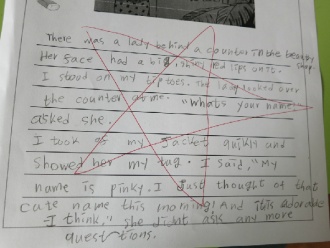 There was a lady behind a counter in the beauty shop.
Her face had a big, shiny red lips on it.
I stood on my tiptoes. The lady looked over
the counter at me. "Whats your name"
asked she.
I took of my jacket quickly and
showed her my tag. I said, "My
name is pinky. I just thought of that
cute name this morning! And its adorable
I think," she didnt ask any more
questions.